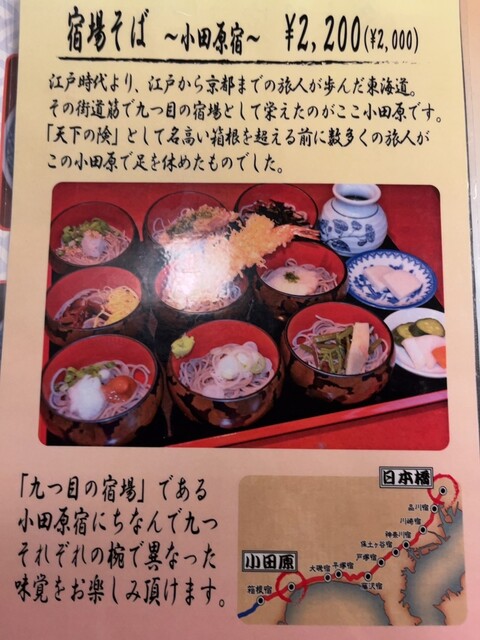 宿場そば ～小田原宿～ ¥2,200(¥2,000)
江戸時代より、江戸から京都までの旅人が歩んだ東海道。
その街道筋で九つ目の宿場として栄えたのがここ小田原です。
「天下の険」として名高い箱根を超える前に数多くの旅人が
この小田原で足を休めたものでした。
「九つ目の宿場」である
小田原宿にちなんで九つ
それぞれの椀で異なった
味覚をお楽しみ頂けます。
日本橋
品川宿
川崎宿
神奈川宿
保土ヶ谷宿
戸塚宿
藤沢宿
平塚宿
大磯宿
小田原
箱根宿